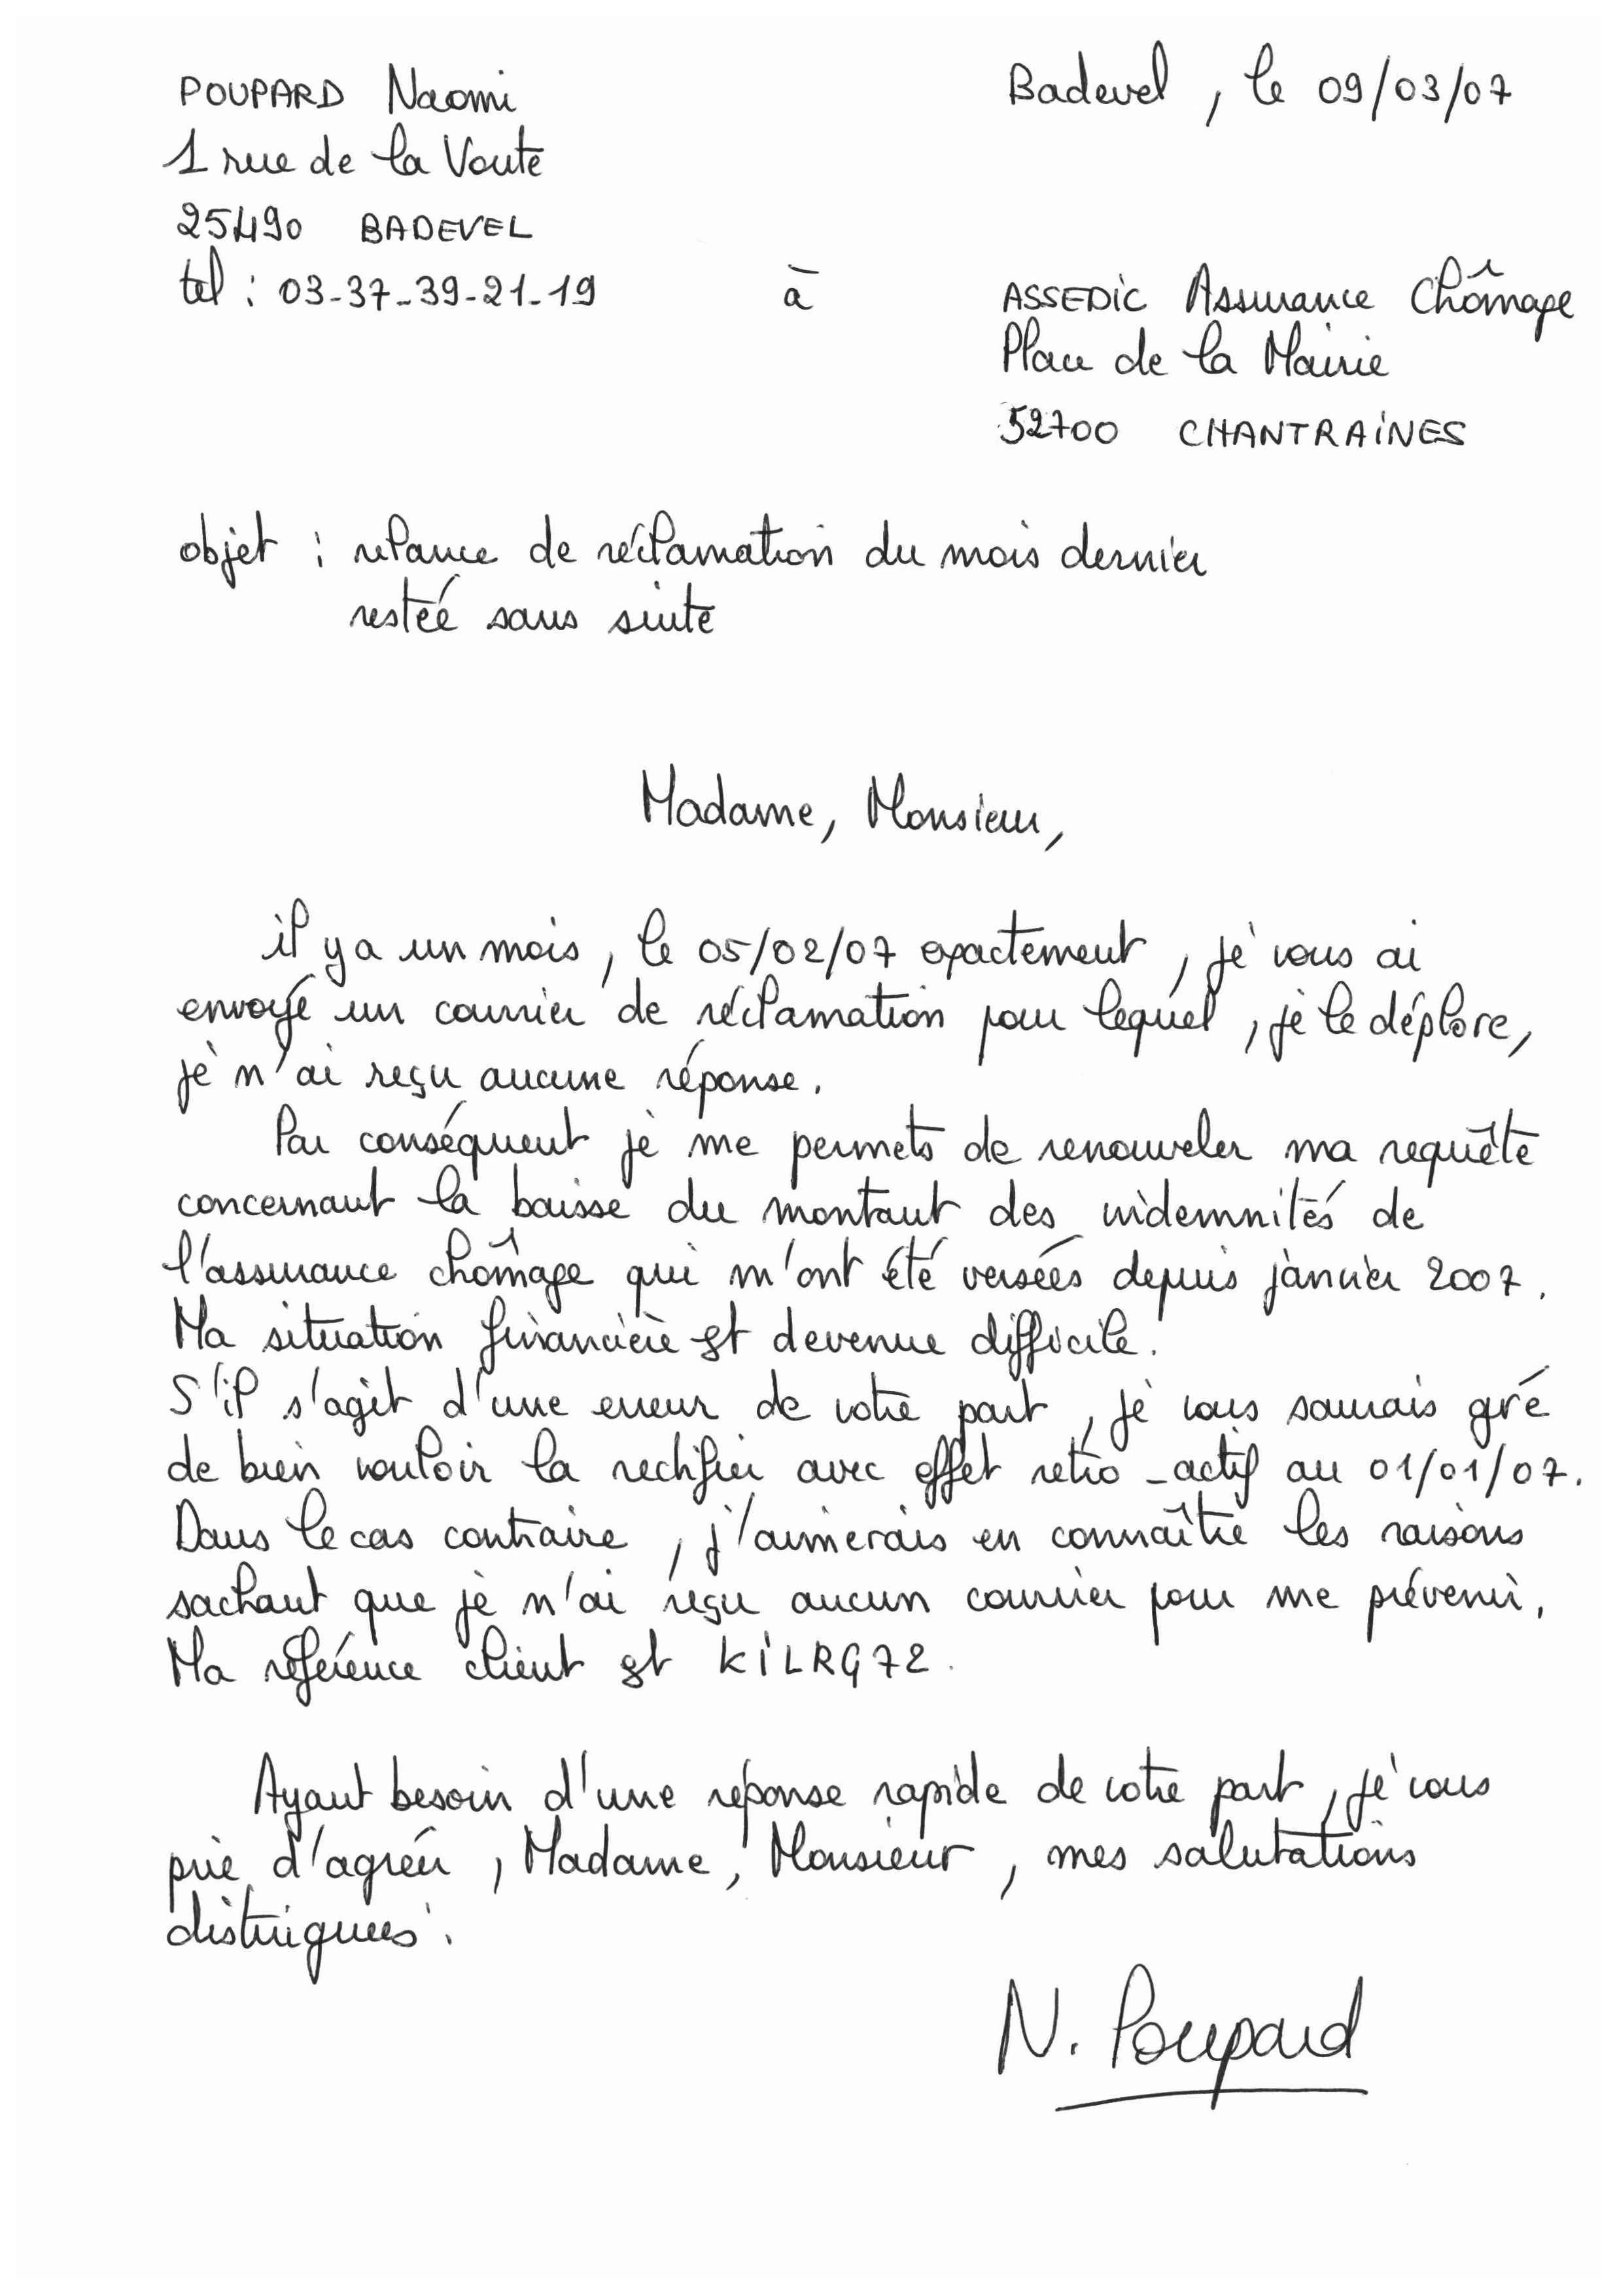 POUPARD Naomi
Badevel, le 09/03/07
1 rue de la Voute
25490 BADEVEL
tel : 03-37-39-21-19
à
ASSEDIC Assurance Chômage
Place de la Mairie
52700 CHANTRAINES
objet : relance de réclamation du mois dernier
restée sans suite
Madame, Monsieur,
il y a un mois, le 05/02/07 exactement, je vous ai
envoyé un courrier de réclamation pour lequel, je le déplore,
je n'ai reçu aucune réponse.
Par conséquent je me permets de renouveler ma requête
concernant la baisse du montant des indemnités de
l'assurance chômage qui m'ont été versées depuis janvier 2007.
Ma situation financière est devenue difficile.
S'il s'agit d'une erreur de votre part, je vous saurais gré
de bien vouloir la rectifier avec effet rétro-actif au 01/01/07.
Dans le cas contraire, j'aimerais en connaître les raisons
sachant que je n'ai reçu aucun courrier pour me prévenir.
Ma référence client est KILRG72.
Ayant besoin d'une réponse rapide de votre part, je vous
prie d'agréer, Madame, Monsieur, mes salutations
distinguées.
N. Poupard